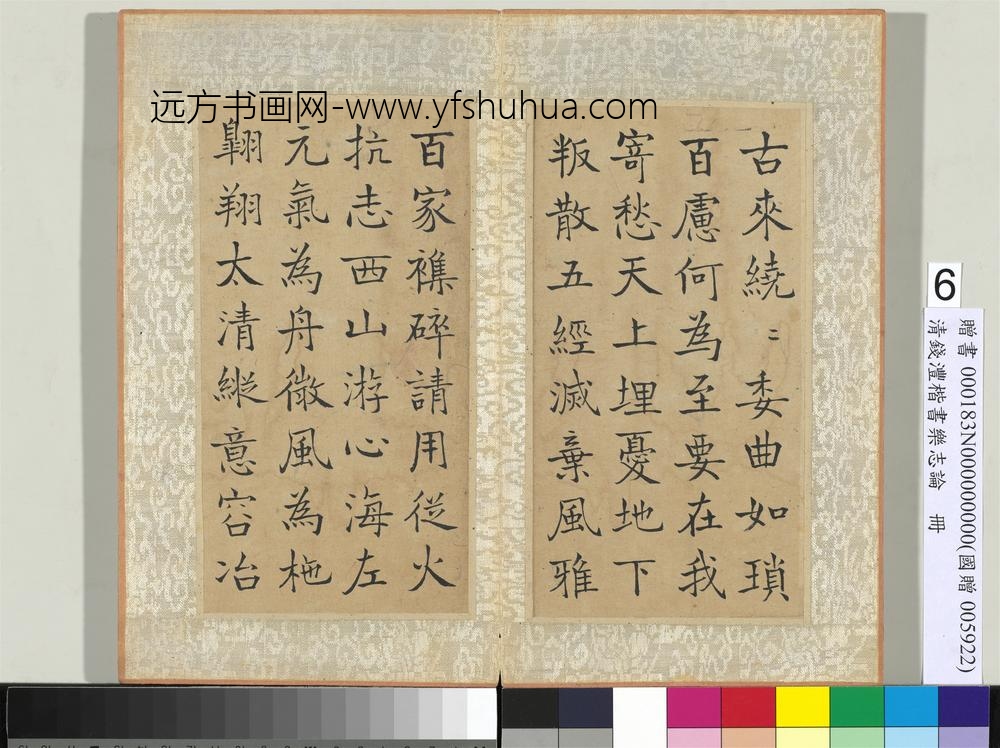 远方书画网-www.yfshuhua.com
古來繞〻委曲如瑣
百慮何為至要在我
寄愁天上埋憂地下
叛散五經滅棄風雅
百家襍碎請用從火
抗志西山游心海左
元氣為舟微風為柂
翺翔太清縱意容冶
6
贈書 000183N000000000(國贈 005922)
清錢灃楷書樂志論 冊